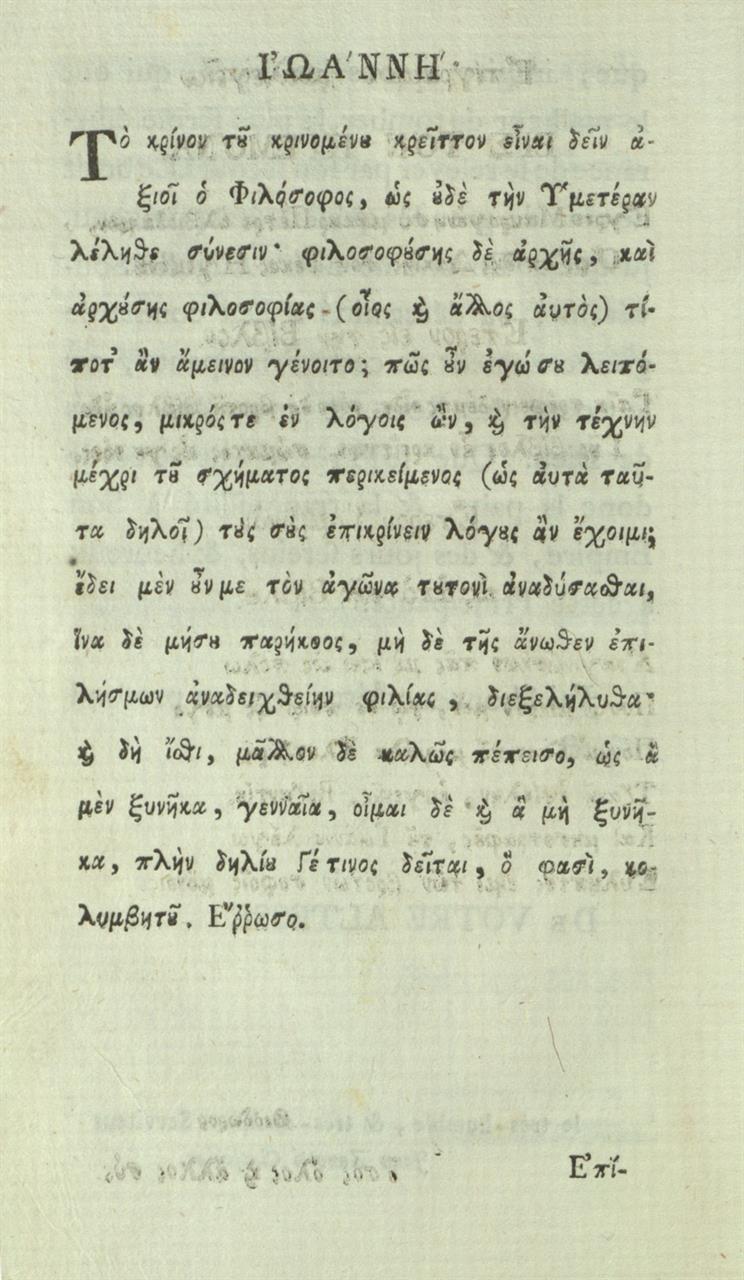 ἸΩΆΝΝΗ·
Τὸ κρίνον τȣ͂ κρινομένȣ κρεῖττον εἶναι δεῖν ἀ-
ξιοῖ ὁ Φιλόσοφος, ὡς ȣ̓δὲ τὴν Ὑμετέραν
λέληθε σύνεσιν· φιλοσοφȣ́σης δὲ ἀρχῆς, καὶ
ἀρχȣ́σης φιλοσοφίας (οἷος ϗ ἄλλος ἀυτὸς) τί-
ποτ' ἂν ἄμεινον γένοιτο; πῶς ȣ̓͂ν ἐγώ σȣ λειπό-
μενος, μικρόςτε ἐν λόγοις ὢν, ϗ τὴν τέχνην
μέχρι τȣ͂ σχήματος περικείμενος (ὡς ἀυτὰ ταῦ-
τα δηλοῖ) τȣ̀ς σȣ̀ς ἐπικρίνειν λόγȣς ἂν ἔχοιμι;
ἔδει μὲν ȣ̓͂ν με τὸν ἀγῶνα τȣτονὶ ἀναδύσασθαι,
ἵνα δὲ μήσȣ παρήκοος, μὴ δὲ τῆς ἄνωθεν ἐπι-
λήσμων ἀναδειχθείην φιλίας, διεξελήλυθα·
ϗ δὴ ἴσθι, μᾶλλον δὲ καλῶς πέπεισο, ὡς ἃ
μὲν ξυνῆκα, γενναῖα, οἶμαι δὲ ϗ ἃ μὴ ξυνῆ-
κα, πλὴν δηλίȣ γέ τινος δεῖται, ὅ φασὶ, κο-
λυμβητȣ͂. Ἔῤῥωσο.
Ἐπί-